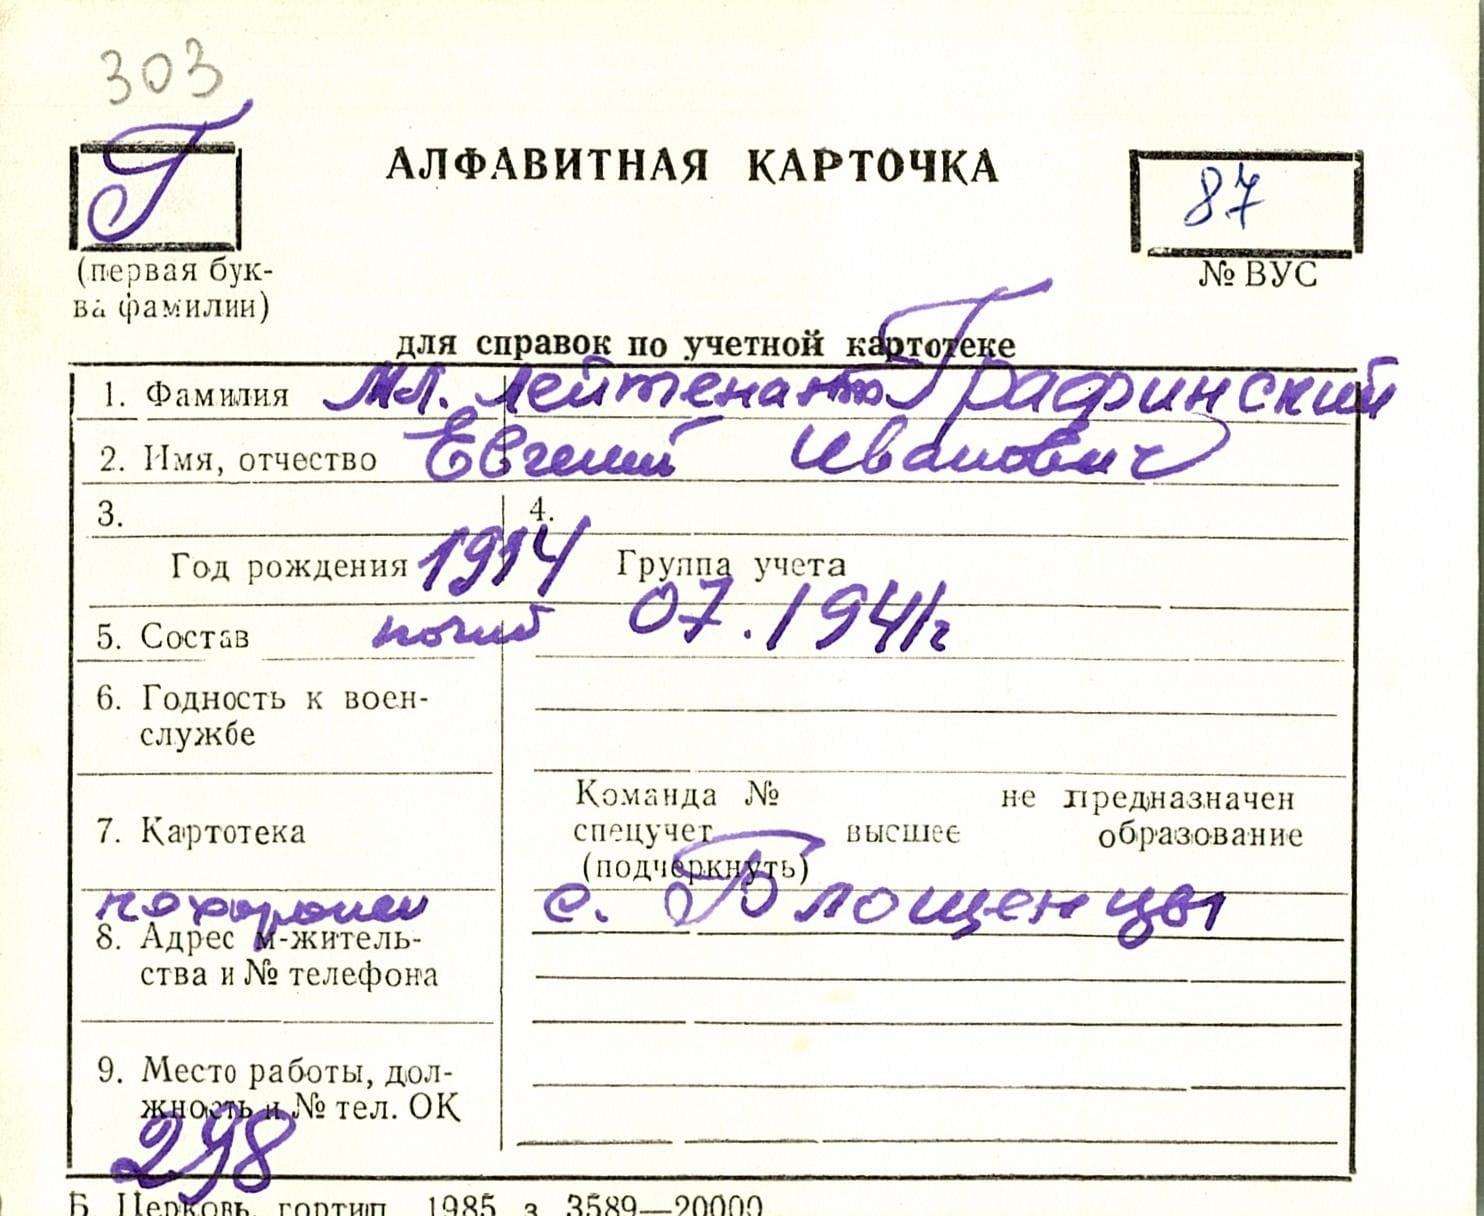 303
Г
АЛФАВИТНАЯ КАРТОЧКА
87
(первая бук-
ва фамилии)
№ ВУС
для справок по учетной картотеке
1. Фамилия Мл. лейтенант Графинский
2. Имя, отчество Евгений Иванович
3. 4.
Год рождения 1914 Группа учета
5. Состав погиб 07.1941г
6. Годность к воен-
службе
7. Картотека
Команда № не предназначен
спецучет высшее образование
(подчеркнуть)
похоронен с. Блощенцы
8. Адрес м-житель-
ства и № телефона
9. Место работы, дол-
жность и № тел. ОК
298
Б. Церковь, гортип. 1985 з. 3589—20000